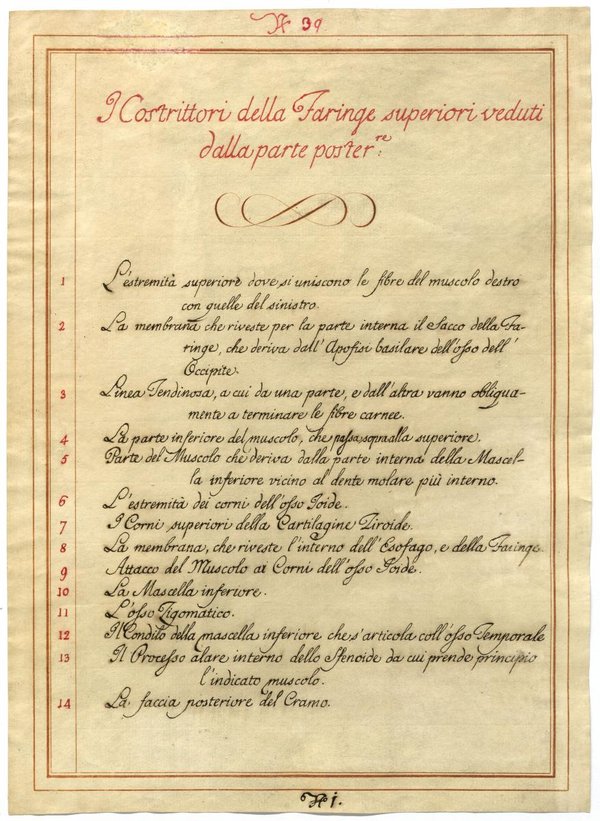 N 39
I Costrittori della Faringe superiori veduti
dalla parte poster:re
1 L'estremità superiore dove si uniscono le fibre del muscolo destro
con quelle del sinistro.
2 La membrana che riveste per la parte interna il Sacco della Fa-
ringe, che deriva dall' Apofisi basilare dell'osso dell'
Occipite.
3 Linea Tendinosa, a cui da una parte, e dall'altra vanno obliqua-
mente a terminare le fibre carnee.
4 La parte inferiore del muscolo, che passa sopra alla superiore.
5 Parte del Muscolo che deriva dalla parte interna della Mascel-
la inferiore vicino al dente molare più interno.
6 L'estremità dei corni dell'osso Ioide.
7 I Corni superiori della Cartilagine Tiroide.
8 La membrana, che riveste l'interno dell'Esofago, e della Faringe.
9 Attacco del Muscolo ai Corni dell'osso Ioide.
10 La Mascella inferiore.
11 L'osso Zigomatico.
12 Il Condilo della mascella inferiore che s'articola coll'osso Temporale
13 Il Processo alare interno dello Sfenoide da cui prende principio
l'indicato muscolo.
14 La faccia posteriore del Cramo.
N 1.